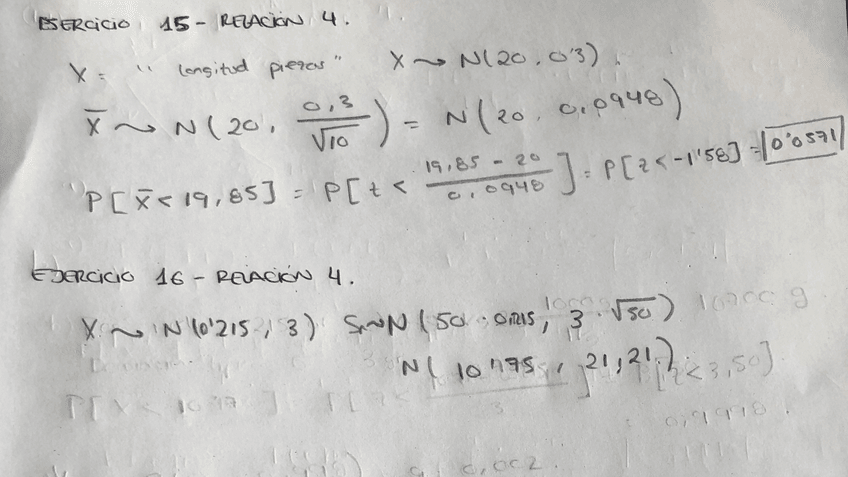 EJERCICIO 15 - RELACIÓN 4.
X = "longitud piezas" X ~ N(20, 0'3).
X̄ ~ N(20, 0,3/√10) = N(20, 0,0948)
P[X̄ < 19,85] = P[z < (19,85 - 20)/0,0948] = P[z < -1'58] = 0'0571
EJERCICIO 16 - RELACIÓN 4.
X ~ N(0'215, 3) S ~ N(50 · 0'215, 3 · √50)
N(10'775, 21,21)